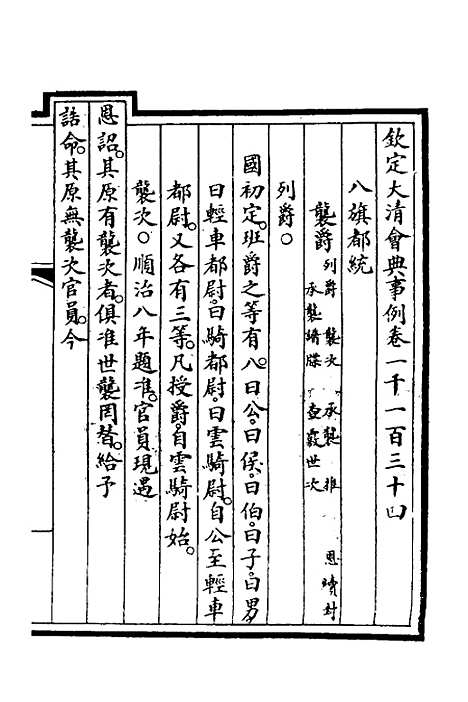 欽定大清會典事例卷一千一百三十四
八旗都統
襲爵 列爵 襲次 承襲 推恩封
承襲譜牒 查覈世次
列爵〇
國初定。班爵之等有八。曰公。曰侯。曰伯。曰子。曰男。
曰輕車都尉。曰騎都尉。曰雲騎尉。自公至輕車
都尉。又各有三等。凡授爵。自雲騎尉始。
襲次〇順治八年題准。官員現遇
恩詔。其原有襲次者。俱准世襲罔替。給予
誥命。其原無襲次官員。今